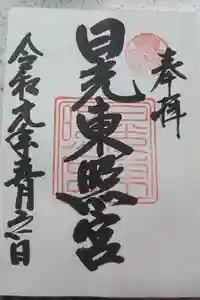 奉拝
日光東照宮
令和元年五月日